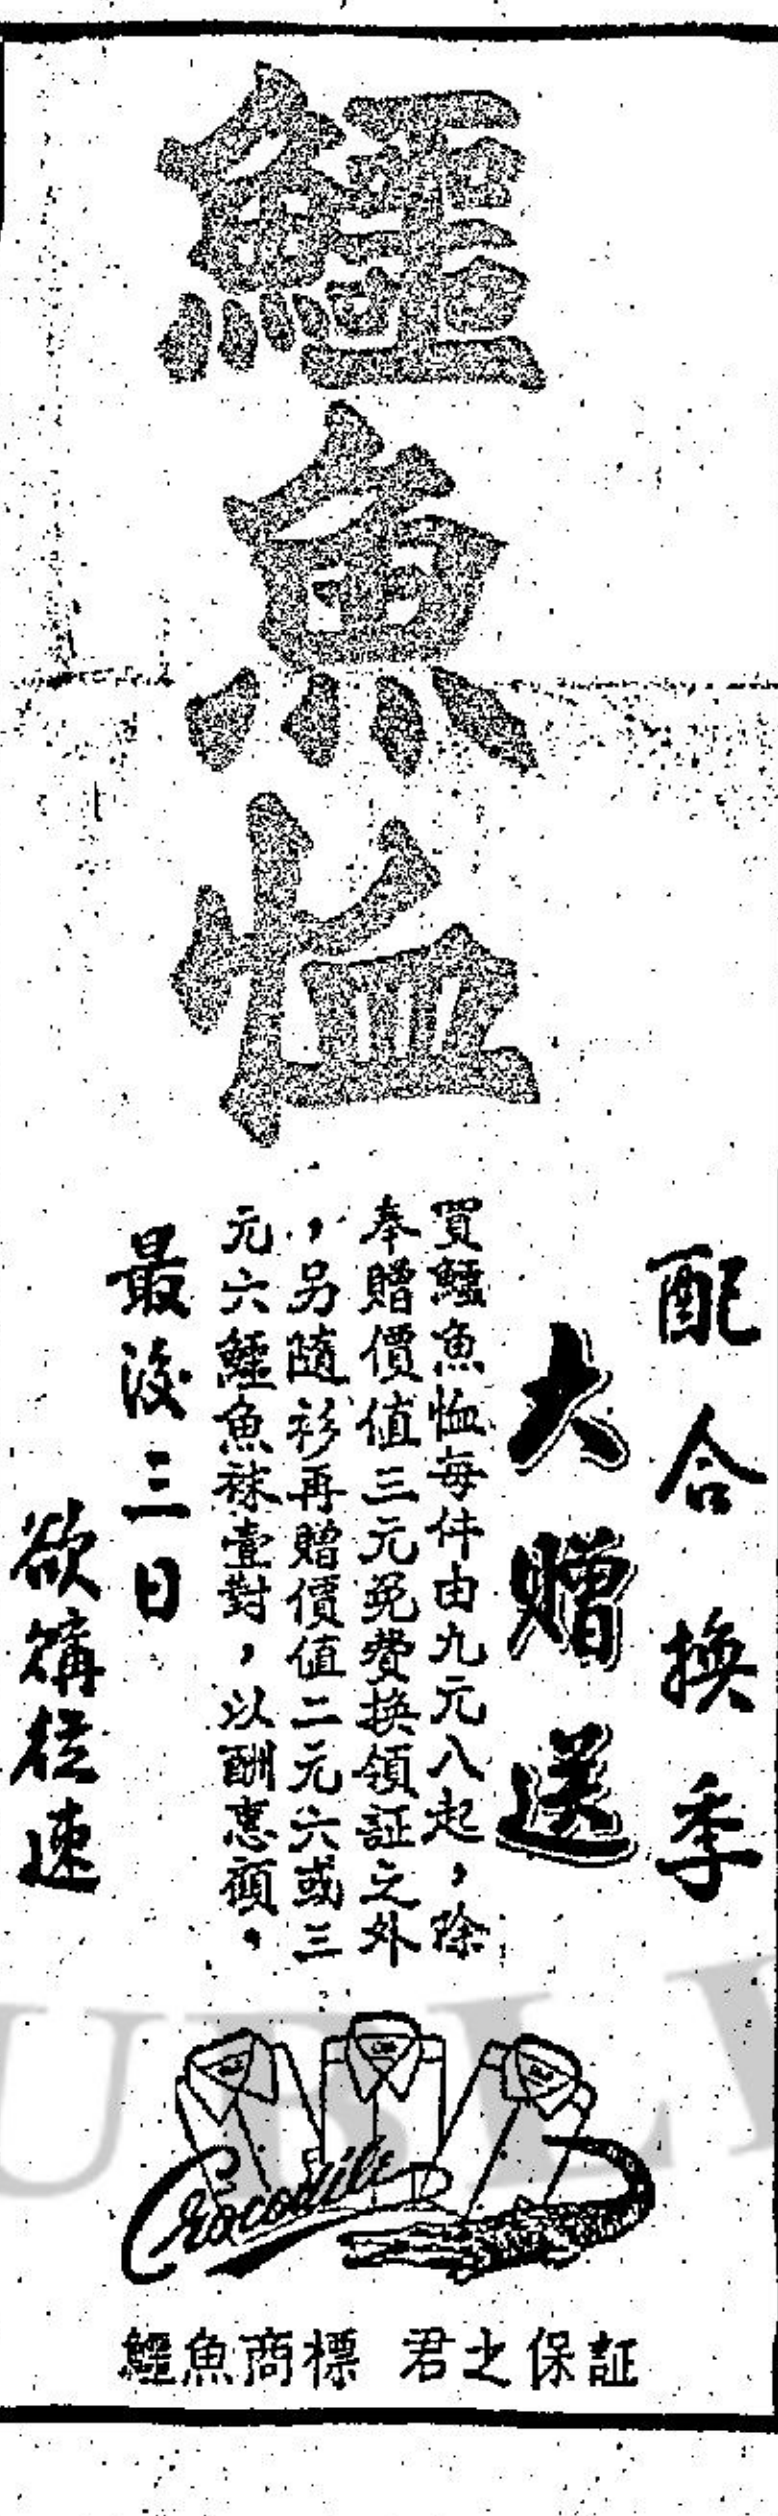 鱷魚恤
配合換季
大贈送
買鱷魚恤每件由九元八起，除
奉贈價值三元免費換領証之外
，另隨衫再贈價值二元六或三
元六鱷魚袜壹對，以酬惠顧。
最後三日
欲購從速
Crocodile
鱷魚商標 君之保証